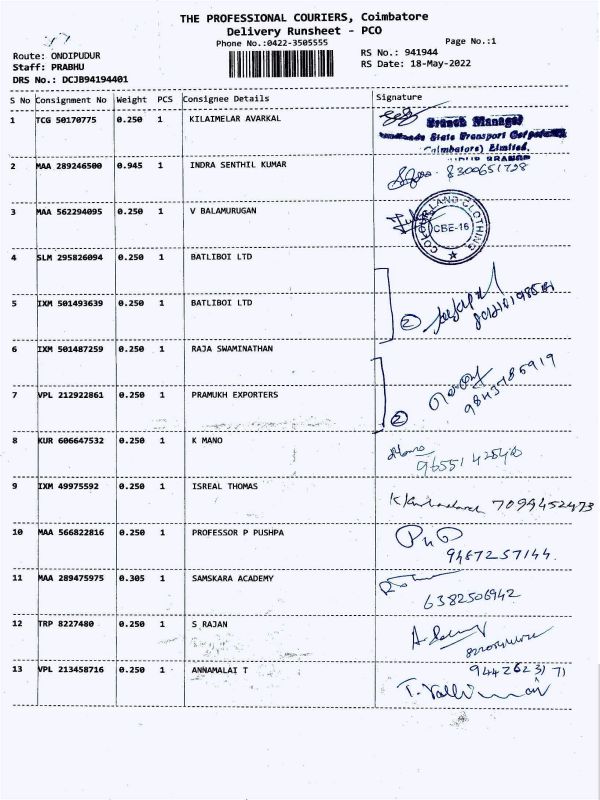 THE PROFESSIONAL COURIERS, Coimbatore
Delivery Runsheet - PCO
Phone No.:0422-3505555
Page No.:1
Route: ONDIPUDUR
Staff: PRABHU
DRS No.: DCJB94194401
RS No.: 941944
RS Date: 18-May-2022
S No Consignment No Weight PCS Consignee Details Signature
1 TCG 50170775 0.250 1 KILAIMELAR AVARKAL
Branch Manager
State Transport Corporation
(Coimbatore) Limited,
BRANCH
2 MAA 289246500 0.945 1 INDRA SENTHIL KUMAR 8300651728
3 MAA 562294095 0.250 1 V BALAMURUGAN
COLOUR LAND CLOTHING
CBE-16
4 SLM 295826094 0.250 1 BATLIBOI LTD
5 IXM 501493639 0.250 1 BATLIBOI LTD
2
6 IXM 501487259 0.250 1 RAJA SWAMINATHAN
7 VPL 212922861 0.250 1 PRAMUKH EXPORTERS
2
8 KUR 606647532 0.250 1 K MANO
9 IXM 49975592 0.250 1 ISREAL THOMAS 7094452473
10 MAA 566822816 0.250 1 PROFESSOR P PUSHPA
9487257144.
11 MAA 289475975 0.305 1 SAMSKARA ACADEMY
6382506942
12 TRP 8227480 0.250 1 S RAJAN
13 VPL 213458716 0.250 1 ANNAMALAI T